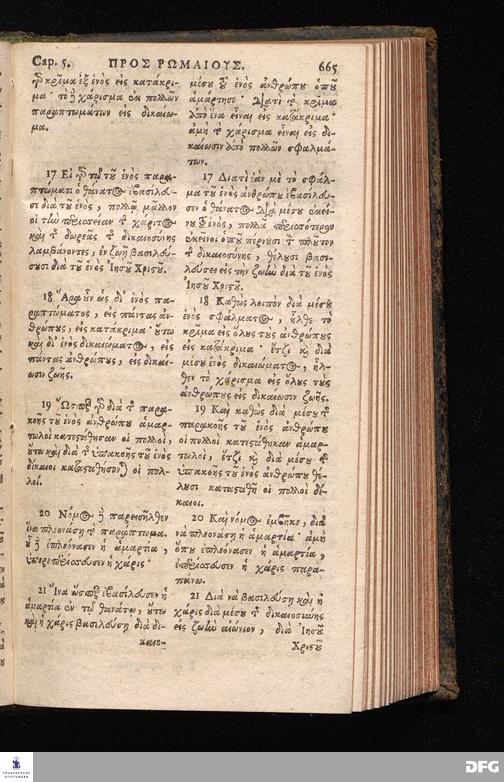 Cap. 5. ΠΡΟΣ ΡΩΜΑΙΟΥΣ. 665
κρῖμα ἐξ ἑνὸς εἰς κατάκρι-
μα· τὸ ἢ χάρισμα ἐκ πολλῶν
παραπτωμάτων εἰς δικαίω-
μα.
17 Εἰ τῷ τῦ ἑνὸς παρα-
πτώματι ὁ θάνατος ἐβασίλευ-
σε διὰ τῦ ἑνὸς, πολλῷ μᾶλλον
οἱ τὼ περισσείαν τ χάριτος
καὶ τ δωρεᾶς τ δικαιοσύνης
λαμβάνοντες, ἐν ζωῇ βασιλεύ-
συσι διὰ τῦ ἑνὸς Ἰησῦ Χριστῦ.
18 Ἄρα ὖν ὡς δι' ἑνὸς πα-
ραπτώματος, εἰς πάντας ἀν-
θρώπυς, εἰς κατάκριμα· ὕτω
καὶ δι' ἑνὸς δικαιώματος, εἰς
πάντας ἀνθρώπυς, εἰς δικαί-
ωσιν ζωῆς.
19 Ὥσπερ διὰ τ παρα-
κοῆς τῦ ἑνὸς ἀνθρώπυ ἁμαρ-
τωλοὶ κατεστάθησαν οἱ πολλοὶ,
ὕτω καὶ διὰ τ ὑπακοῆς τῦ ἑνὸς
δίκαιοι κατασταθήσον) οἱ πολ-
λοί.
20 Νόμος ἢ παρεισῆλθεν
ἵνα πλεονάσῃ τὸ παράπτωμα.
ὗ ἢ ἐπλεόνασεν ἡ ἁμαρτία,
ὑπερεπερίσσευσεν ἡ χάρις·
21 Ἵνα ὥσπερ ἐβασίλευσεν ἡ
ἁμαρτία ἐν τῷ θανάτῳ, ὕτω
καὶ ἡ χάρις βασιλεύσῃ διὰ δι-
καιο-
μέσυ ὗ ἑνὸς ἀνθρώπυ ὁπῦ
ἁμάρτησε· διατὶ τὸ κρῖμα
ἀπὸ ἕνα εἶναι εἰς κατάκριμα·
ἀμὴ τὸ χάρισμα εἶναι εἰς δι-
καίωσιν ἀπὸ πολλῶν σφαλμά-
των.
17 Διατὶ ἐὰν μὲ τὸ σφάλ-
μα τῦ ἑνὸς ἀνθρώπυ ἐβασίλευ-
σεν ὁ θάνατος διὰ μέσυ ἐκεί-
νυ ὗ ἑνὸς, πολλὰ περισσότερον
ἐκεῖνοι ὁπῦ πέρνυσι τ πλῦτον
τ δικαιοσύνης, θέλυσι βασι-
λεύσει εἰς τὴν ζωὼ διὰ τῦ ἑνὸς
Ἰησῦ Χριστῦ.
18 Καθὼς λοιπὸν διὰ μέσυ
ἑνὸς σφάλματος, ἦλθε τὸ
κρῖμα εἰς ὅλυς τὺς ἀνθρώπυς
εἰς κατάκριμα· ἔτζι κ διὰ
μέσυ ἑνὸς δικαιώματος, ἦλ-
θεν τὸ χάρισμα εἰς ὅλυς τὺς
ἀνθρώπυς εἰς δικαίωσιν ζωῆς.
19 Καὶ καθὼς διὰ μέσυ τ
παρακοῆς τῦ ἑνὸς ἀνθρώπυ
οἱ πολλοὶ κατεστάθηκαν ἁμαρ-
τωλοὶ, ἔτζι κ διὰ μέσυ τ
ὑπακοῆς τῦ ἑνὸς ἀνθρώπυ θέ-
λυσι κατασταθῆ οἱ πολλοὶ δί-
καιοι.
20 Καὶ νόμος ἐμβῆκε, διὰ
νὰ πλεονάσῃ ἡ ἁμαρτία· ἀμὴ
ὅπυ ἐπλεόνασεν ἡ ἁμαρτία,
ἐπερίσσευσεν ἡ χάρις παρα-
πάνω.
21 Διὰ νὰ βασιλεύσῃ καὶ ἡ
χάρις διὰ μέσυ τ δικαιοσύνης
εἰς ζωὼ αἰώνιον, διὰ Ἰησῦ
Χριστῦ
FRANCKESCHE STIFTUNGEN
DFG